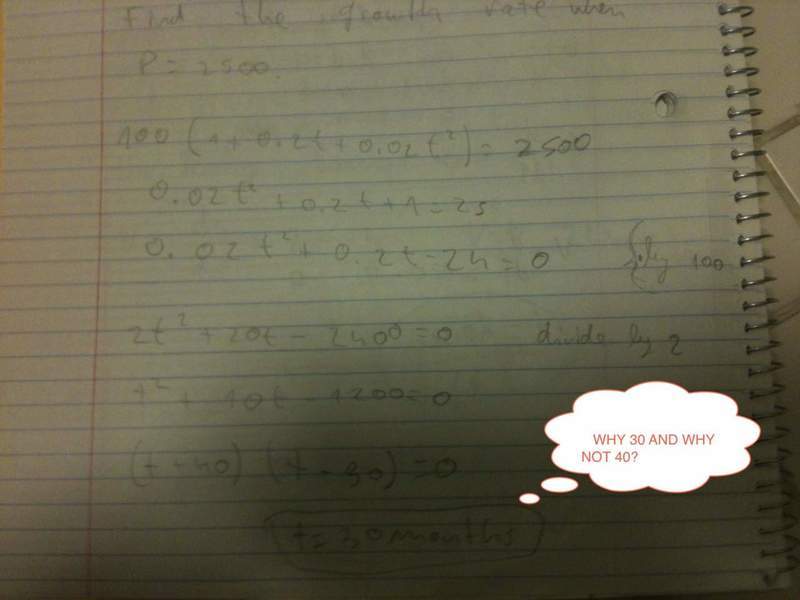 Find the growth rate when
P = 2500.
100 (1 + 0.2t + 0.02t²) = 2500
0.02t² + 0.2t + 1 = 25
0.02t² + 0.2t - 24 = 0 by 100
2t² + 20t - 2400 = 0 divide by 2
t² + 10t - 1200 = 0
(t + 40) (t - 30) = 0
t = 30 months
WHY 30 AND WHY
NOT 40?